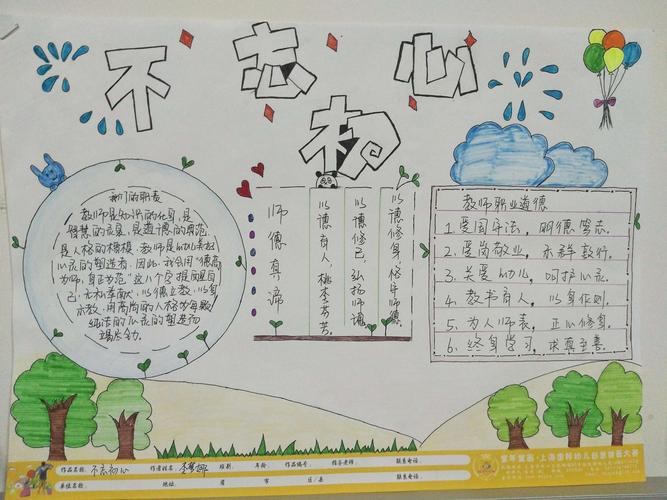 不忘初心
我们的职责
教师是知识的化身,是
智慧的灵泉,是道德的典范,
是人格的楷模,教师是幼儿美好
心灵的塑造者。因此,我会用“德高
为师,身正为范”这八个字指自
己,无私奉献,以德立教,以身
示教,用高尚的人格力量为
纯洁的心灵的塑造而
竭尽全力。
师德真谛
以德育人,桃李芬芳。
以德修己,弘扬师魂
以德修身,恪守师德
教师职业道德
1.爱国守法,明德笃志。
2.爱岗敬业,求群敦行。
3.关爱幼儿,呵护心灵。
4.教书育人,以身作则。
5.为人师表,正心修身。
6.终身学习,求真至善。
作品名称: 不忘初心 作者姓名: 班别: 年龄: 作品编号: 指导老师: 联系电话:
单位名称: 地址: 省 市 区/县 联系电话: